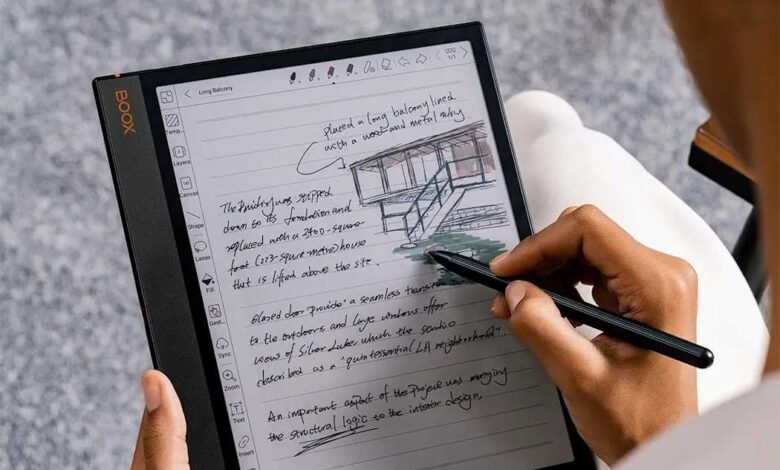 BOOX
Long Balcony
1/1
Temp..
Layers
Canvas
Shape
Lasso
Fill
Gest..
Sync
Zoom
Text
Insert
placed a long balcony lined
with a wood and metal
The building was stripped
down to its foundation and
replaced with a 2400-square-
foot (223-square-metre) house
that is lifted above the site.
Glazed door provide a seamless
to the outdoors and large windows offer
views of Silver Lake which the studio
described as a "quintessential LA neighborhood"
An important aspect of the Project was merging
the structural logic to the interior design.